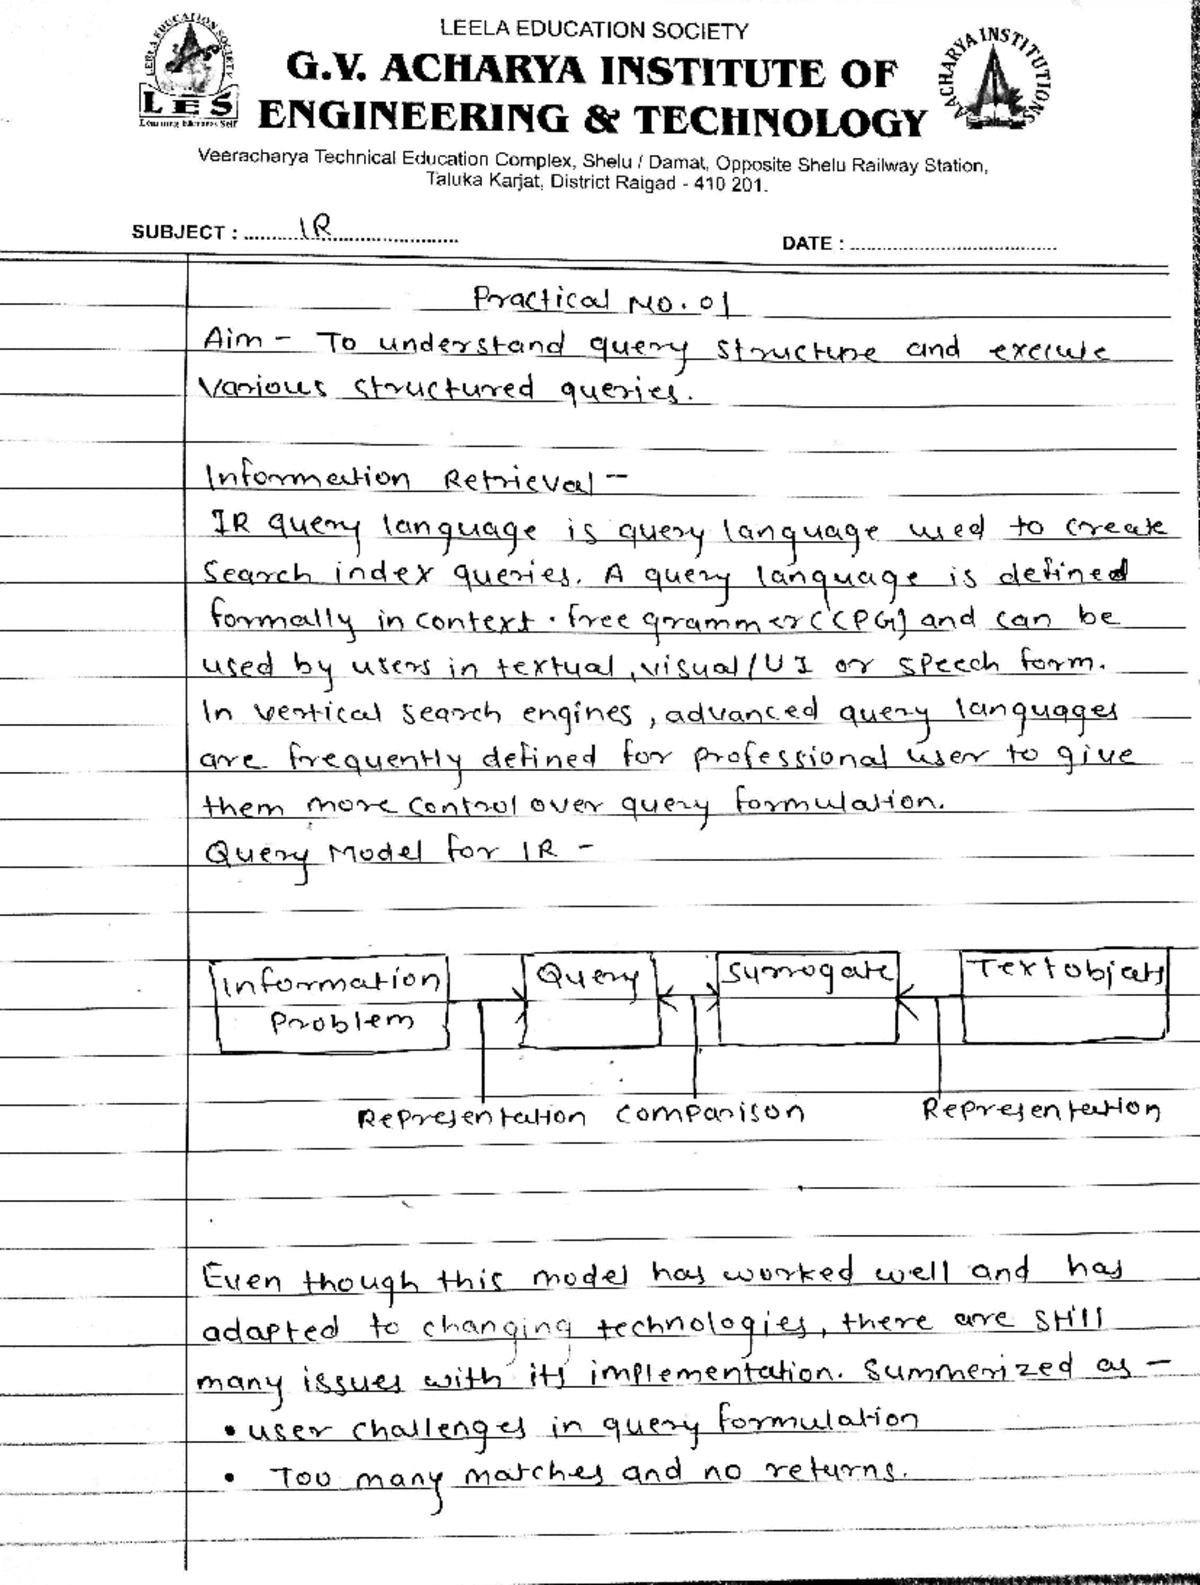 LEELA EDUCATION SOCIETY
G.V. ACHARYA INSTITUTE OF
ENGINEERING & TECHNOLOGY
Veeracharya Technical Education Complex, Shelu / Damat, Opposite Shelu Railway Station,
Taluka Karjat, District Raigad - 410 201.
LEELA EDUCATION SOCIETY
LES
Learning Elevates Self
ACHARYA INSTITUTIONS
SUBJECT : IR
DATE :
Practical No. 01
Aim - To understand query structure and execute
various structured queries.
Information Retrieval -
IR query language is query language used to create
search index queries. A query language is defined
formally in context - free grammer (CPG) and can be
used by users in textual, visual/UI or speech form.
In vertical search engines, advanced query languages
are frequently defined for professional user to give
them more control over query formulation.
Query Model for IR -
Information Problem
Query
Surrogate
Textobjets
Representation
Comparison
Representation
Even though this model has worked well and has
adapted to changing technologies, there are still
many issues with its implementation. Summerized as -
• user challenges in query formulation
• Too many matches and no returns.